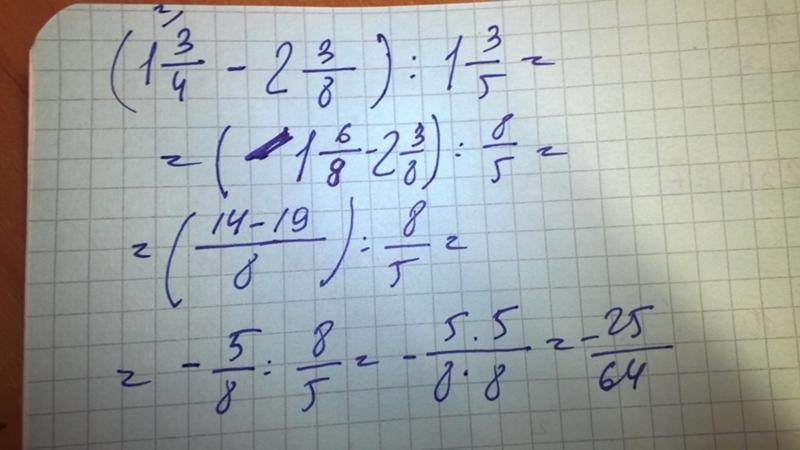 2)
(1 3/4 - 2 3/8) : 1 3/5 =
= (1 6/8 - 2 3/8) : 8/5 =
= ((14-19)/8) : 8/5 =
= - 5/8 : 8/5 = - (5·5)/(8·8) = - 25/64